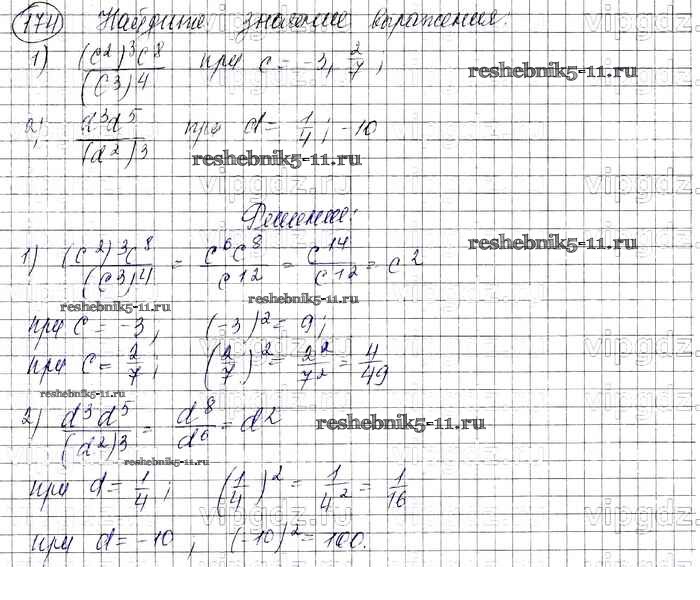 174 Найдите значение выражения:
1) (c²)³c⁸ / (c³)⁴ при c = -3, 2/7;
reshebnik5-11.ru
2) d³d⁵ / (d²)³ при d = 1/4; -10
reshebnik5-11.ru
Решение:
reshebnik5-11.ru
1) (c²)³c⁸ / (c³)⁴ = c⁶c⁸ / c¹² = c¹⁴ / c¹² = c²
reshebnik5-11.ru reshebnik5-11.ru
при c = -3, (-3)² = 9;
при c = 2/7; (2/7)² = 2²/7² = 4/49
reshebnik5-11.ru
2) d³d⁵ / (d²)³ = d⁸ / d⁶ = d²
reshebnik5-11.ru
reshebnik5-11.ru
при d = 1/4; (1/4)² = 1/4² = 1/16
при d = -10; (-10)² = 100.
vipgdz.ru
vipgdz.ru
vipgdz.ru
vipgdz.ru